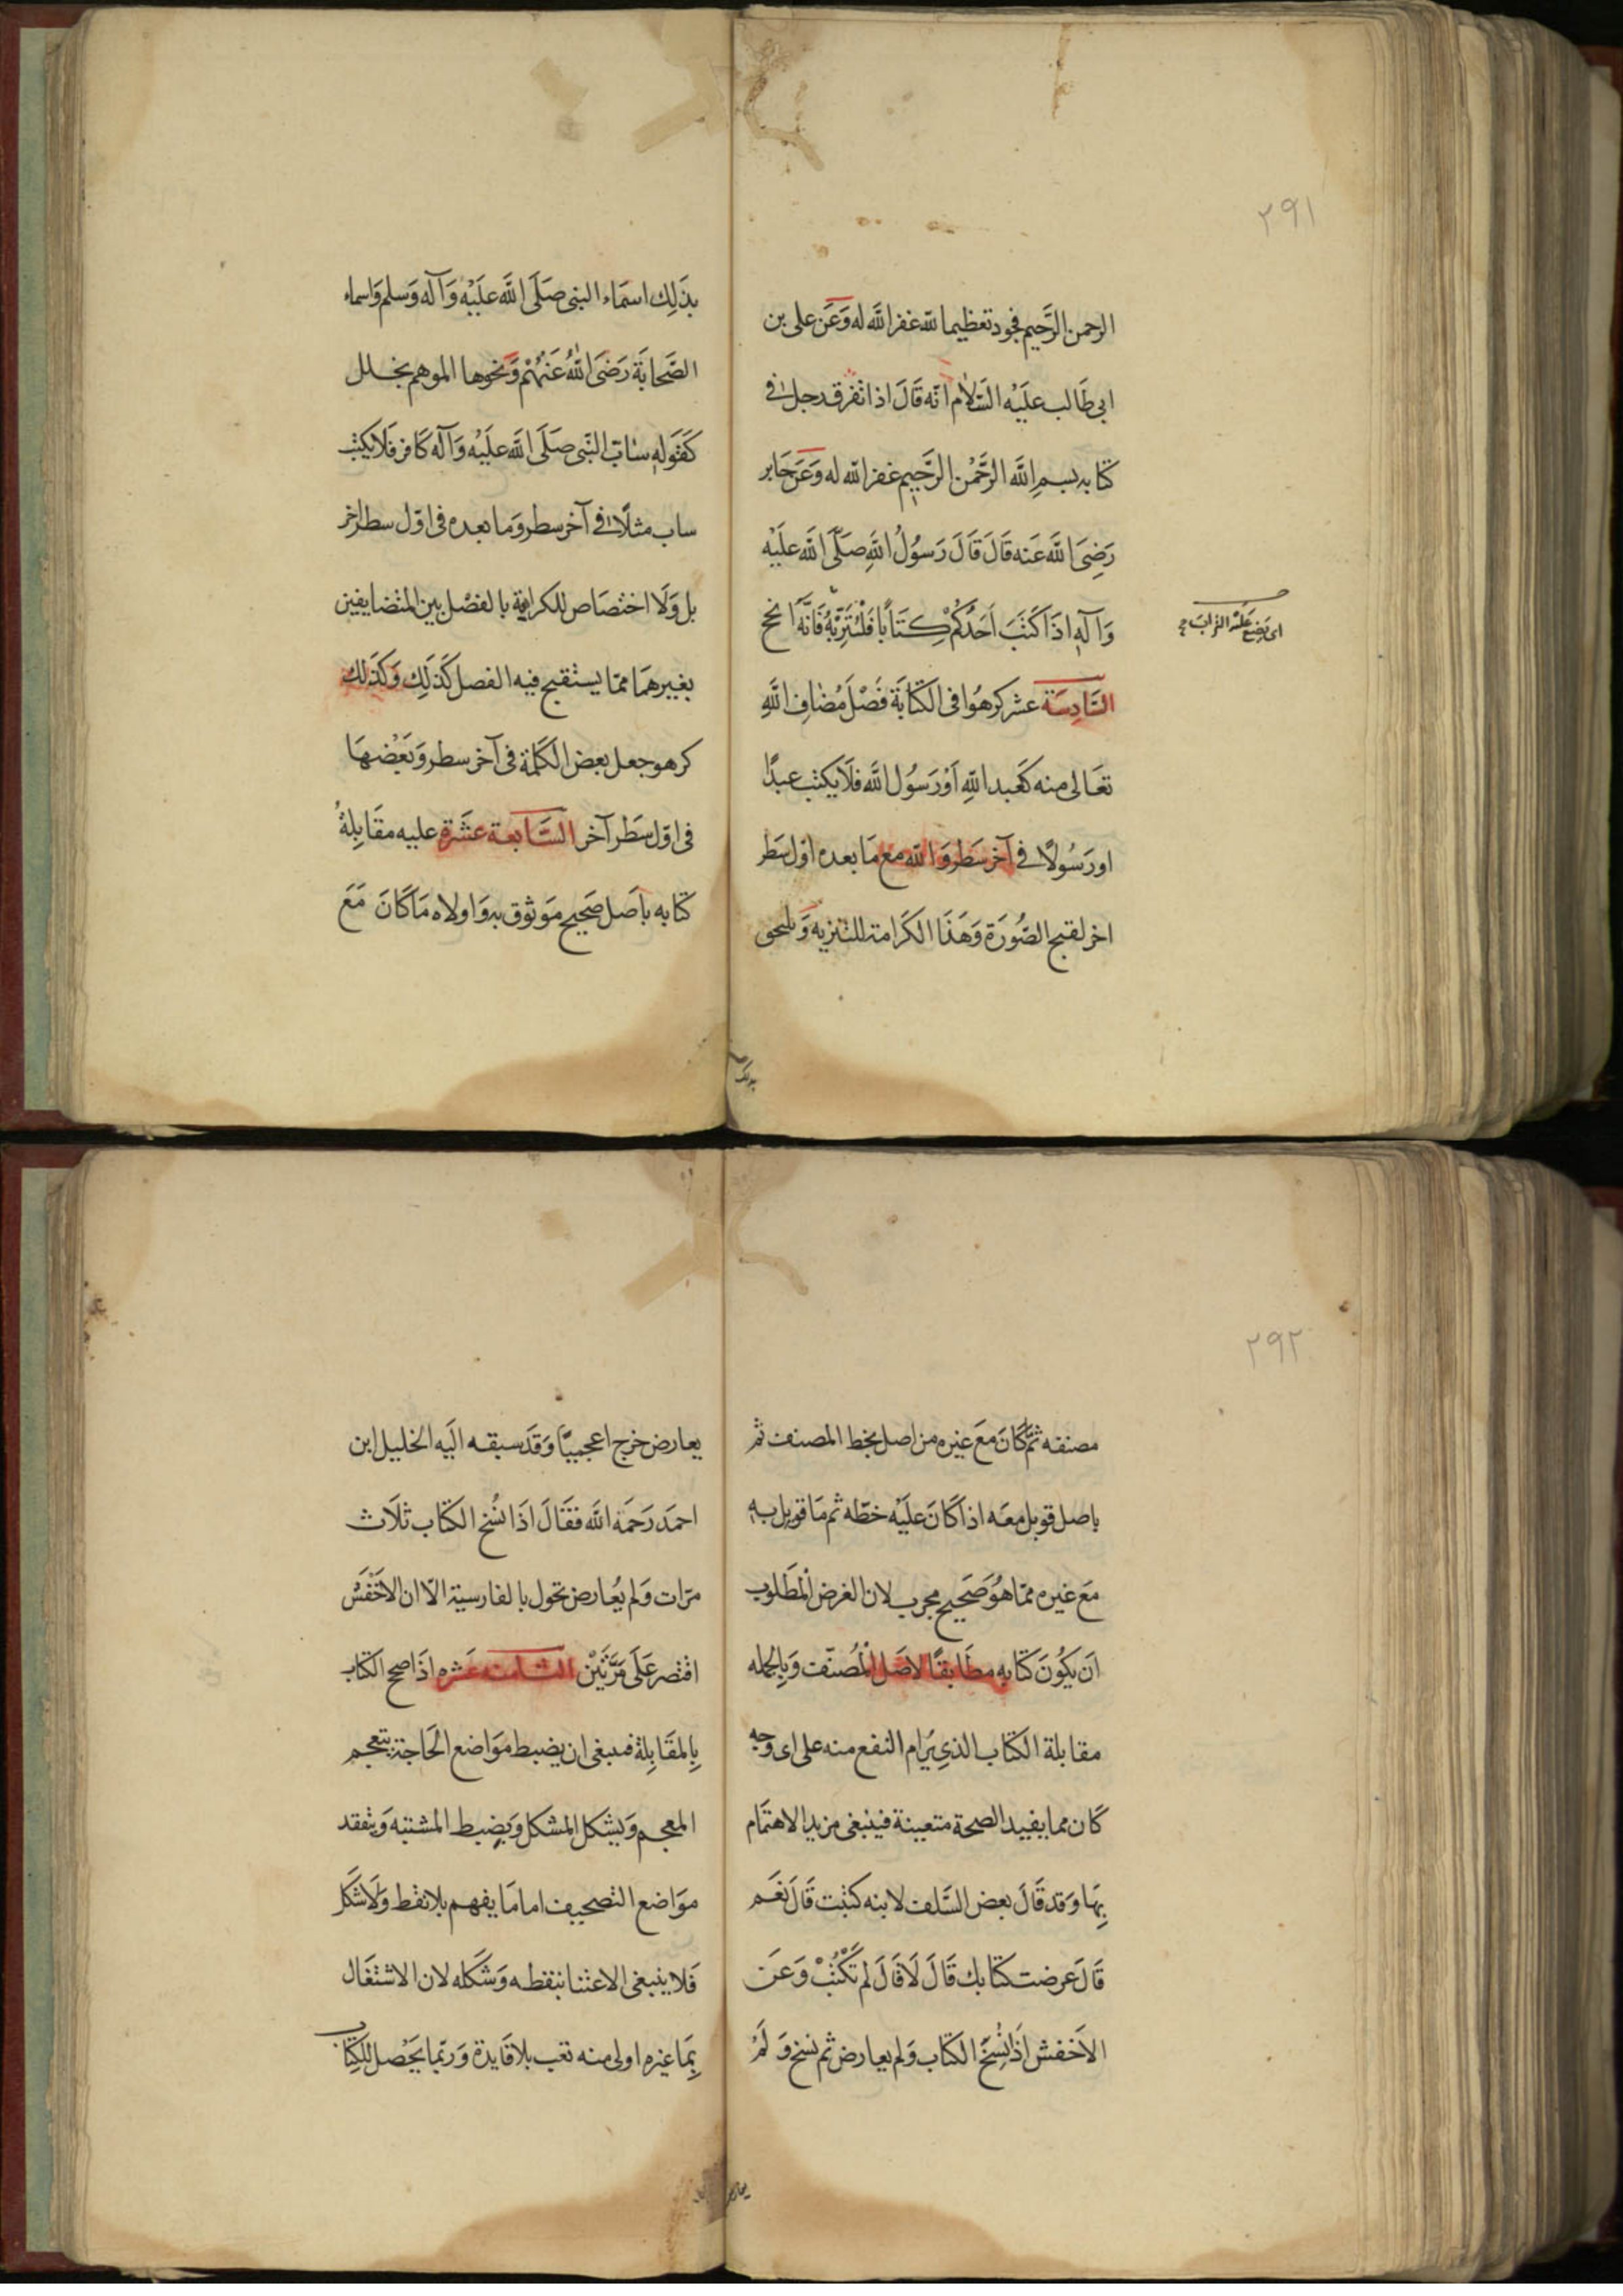 ٢٩١
الرحمن الرَّحيم فجود تعظيما للّه غفر اللَّه له وَعَن على بن
ابى طَالب عليَه السَّلام انّه قَالَ اذا تفرق رجل فى
كتابه بسمِ اللَّه الرَّحْمن الرَّحِيم غفر اللّه له وَعَن جَابر
رَضِىَ اللَّه عَنه قَالَ قَالَ رَسوُلُ اللَّهِ صَلَّى اللَّه عليَْه
وَآلهِ اذَا كَتَبَ اَحَدُكُمْ كِتَابًا فَلْيُتَرِّبْهُ فَانَّهُ اَنجح
اى يَضع عَليْه التراب
السَّادِسَة عشر كرهُوا فى الكتَابَة فَصْلَ مُضاف اللَّهِ
تعَالى منه كَعَبد اللَّهِ اَوْ رَسوُل اللَّه فلَا يكتب عبدًا
اورَسُولًا فى آخر سَطر وَاللّه مع مَا بعده اوّل سَطر
اخر لقبح الصُّورَة وَهَذَا الكَرَامة للتنزيه وَيلحق
بذَلِك اسمَاء النبى صَلَى اللَّه عليَْه وَآله وَسلم وَاسماء
الصَّحابَة رَضىَ اللّهُ عَنهُمْ وَنحوها الموهم بخلل
كَقَولهِ سَابّ النَّبى صَلَى اللَّه عليَْه وَآله كافر فَلا يكتب
ساب مثلًا فى آخر سطر وَما بعده فى اوّل سطر اخر
بل وَلَا اختصَاص للكراهة بالفصْل بين المتضايفين
بغيرهمَا ممّا يستقبح فيه الفصل كَذَلِك وَكَذَلك
كرهو جعل بعض الكَلمة فى آخر سطر وَبَعْضهَا
فى اوّل سَطر آخر السَّابعة عشَرة عليه مقَابلةُ
كتابه باصَل صَحيح مَوثوق به وَاولاه مَا كَانَ مَعَ
بذلك
٢٩٢
مصنفه ثمَّ كَانَ مَعَ غيره من اصل بخط المصنف ثم
باصل قوبل معَه اذا كَانَ عليَْه خطّه ثم مَا قوبل بهِ
مَعَ غيره ممّا هُوَ صَحيح مجرب لان الغرض المْطَلوب
اَن يكُونَ كتابه مطَابقًا لاصَل المُصنّف وَبالجمله
مقابلة الكتاب الذى يَرام النفع منه على اى وَجه
كَان مما يفيد الصحة متعينة فينبغى مزيد الاهتَمام
بِهَا وَقد قَالَ بعض السَّلف لابنه كتبت قَالَ نعَم
قَالَ عرضت كتَابك قَالَ لَا قَالَ لم تَكْتبْ وَعَن
الاَخفش اَذَا نُسِخَ الكتَاب وَلم يعارض ثم نسخ وَ لَمْ
يعارض خرج اعجميًّا وَقَد سبقه اليَه الخليل ابن
احمَد رَحمَه اللَّه فقَالَ اذَا نُسُخ الكتاب ثلَاث
مرّات وَلم يُعارض تحول بالفارسية الّا ان الاخْفَش
اقتصر عَلَى مَرَّتَيْن الثَامنه عَشره اذَا صح الكتَاب
بِالمقَابِلة فينبغى ان يضبط مَوَاضع الحَاجة بتعجم
المعجم وَيشكل المشكل وَيضبط المشتبه وَيتفقد
موَاضع التصحيف اما مَا يفهم بلا نقط وَلَا شكل
فَلا ينبغى الاعتنا بنقطه وَشَكله لان الاشتغَال
بِمَا غيره اولى منه تعب بلا فَايدة وَربّما يَحْصل للكتَاب
يعارض